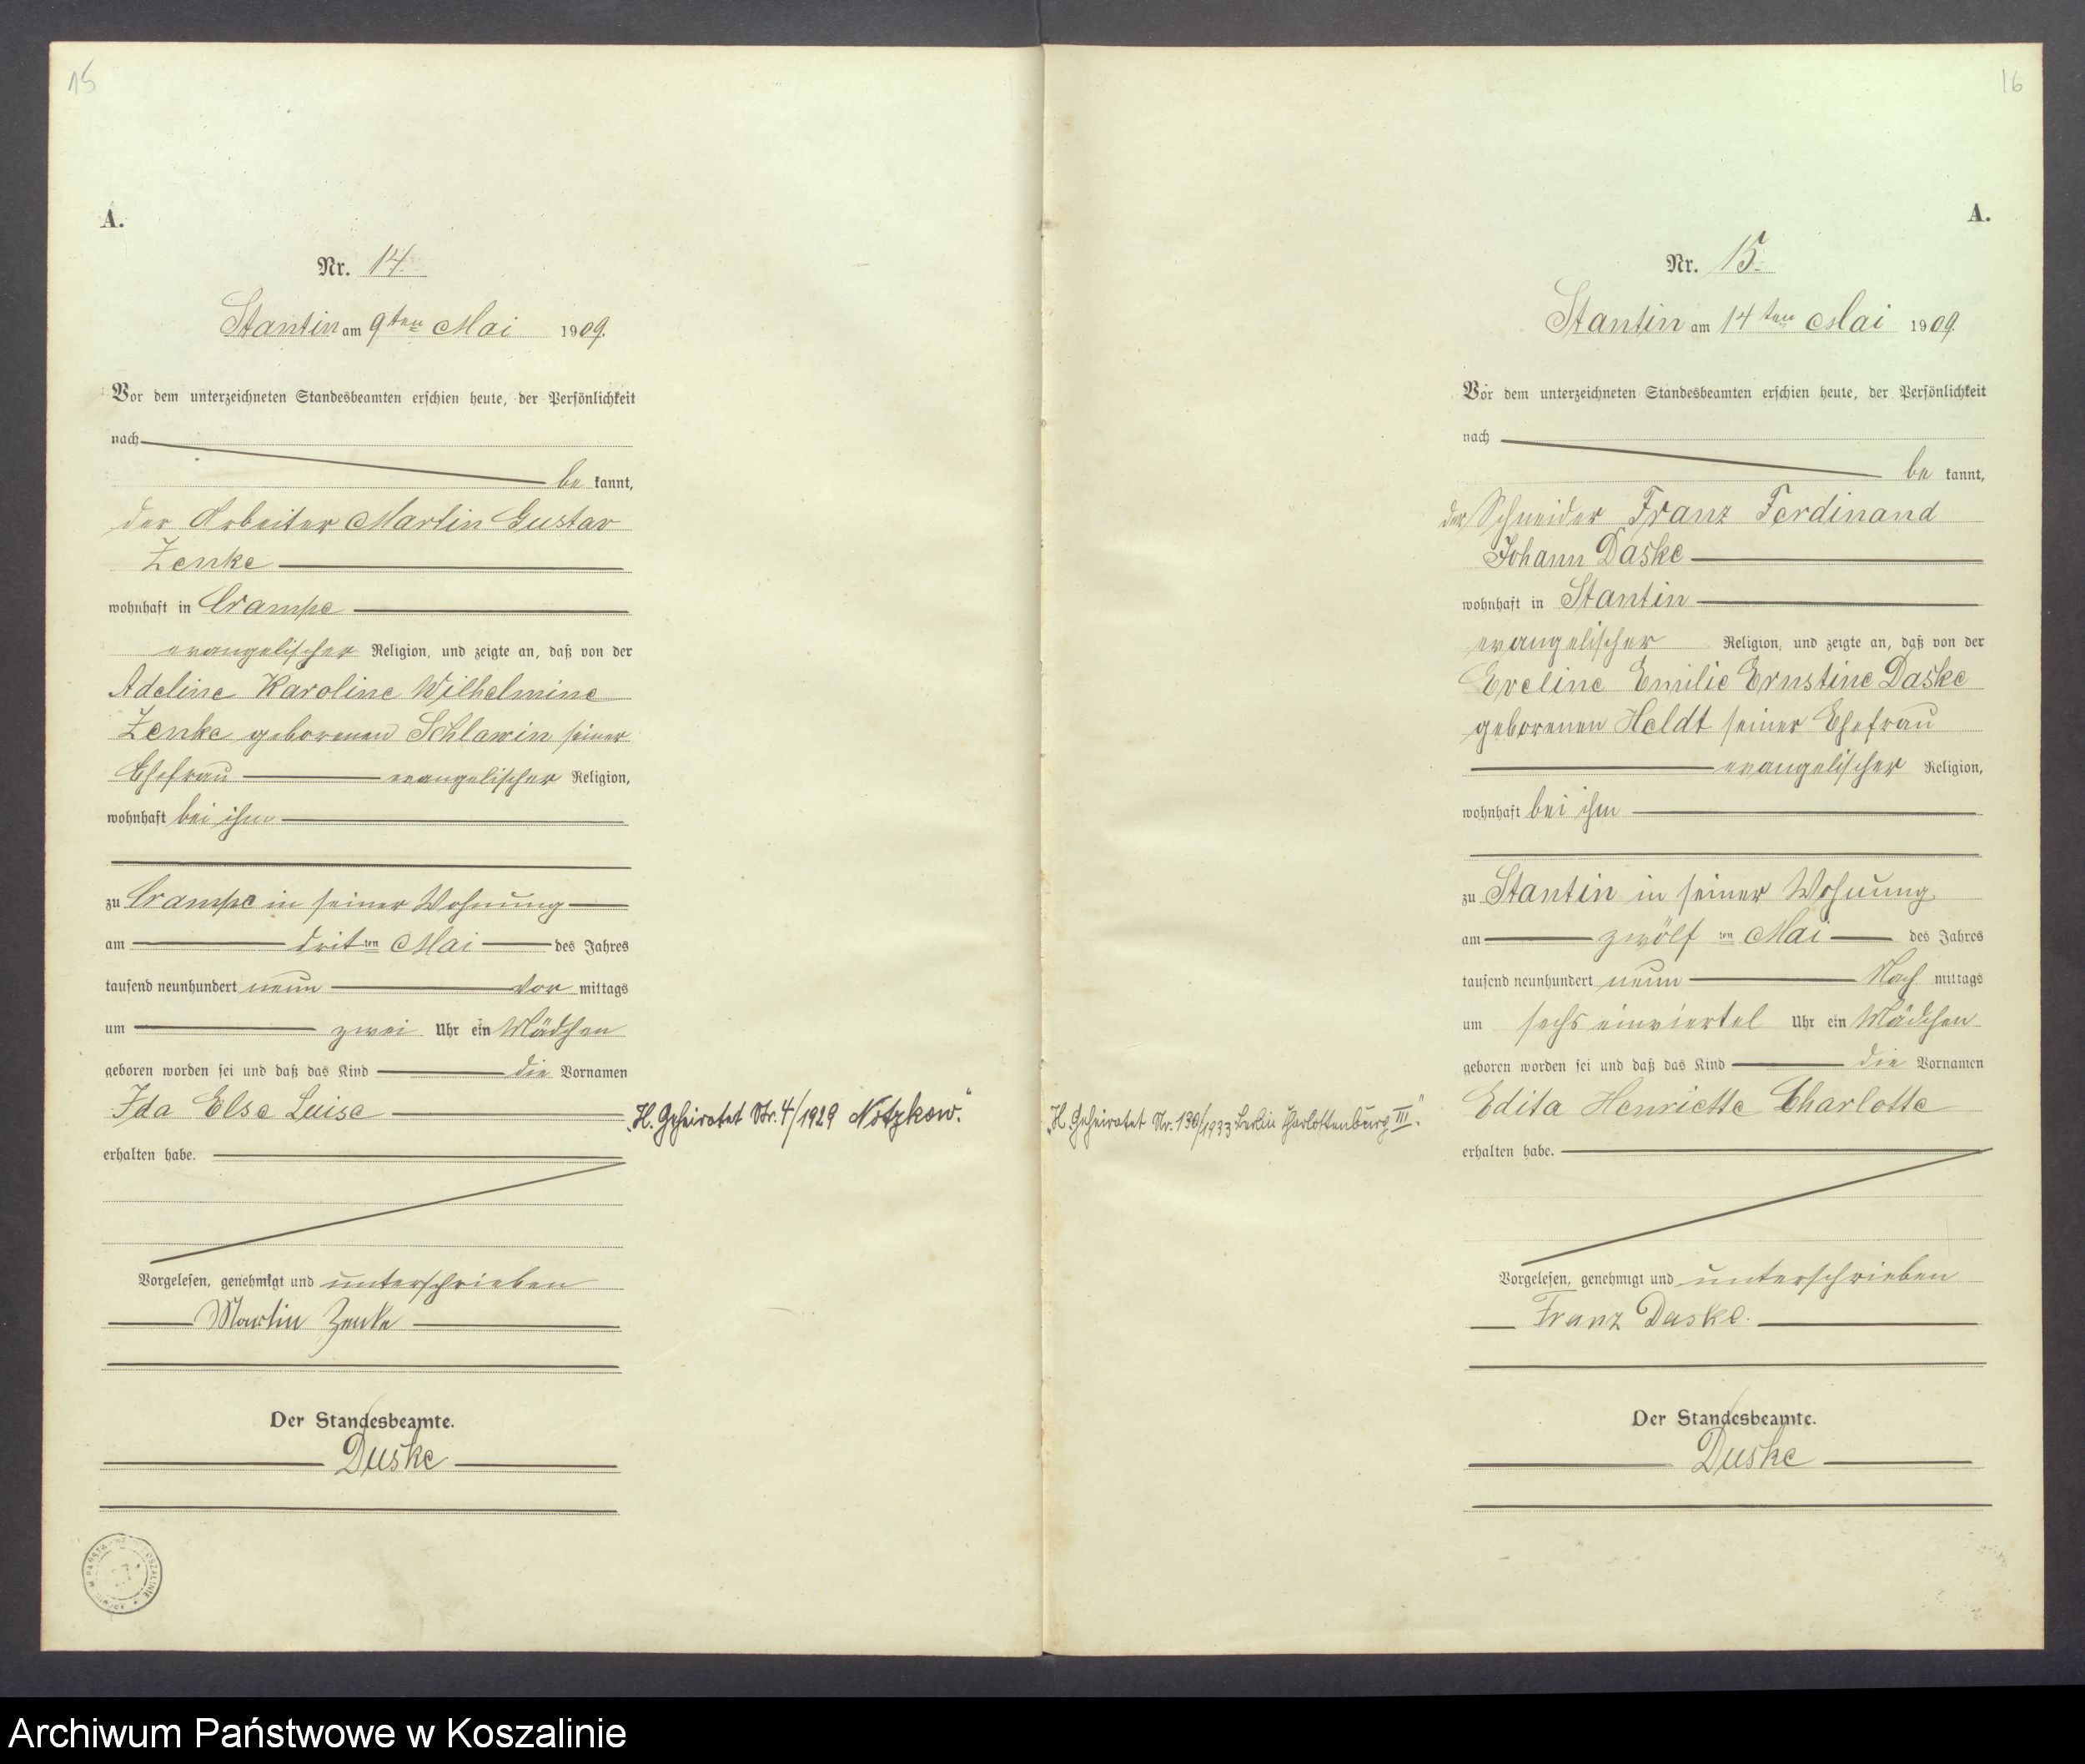 15
A.
Nr. 14.
Stantin am 9ten Mai 1909.
Vor dem unterzeichneten Standesbeamten erschien heute, der Persönlichkeit
nach
be kannt,
der Arbeiter Martin Gustav
Zenke
wohnhaft in Crampe
evangelischer Religion, und zeigte an, daß von der
Adeline Karoline Wilhelmine
Zenke geborenen Schlawin seiner
Ehefrau evangelischer Religion,
wohnhaft bei ihm
zu Crampe in seiner Wohnung
am dritten Mai des Jahres
tausend neunhundert neun Vor mittags
um zwei Uhr ein Mädchen
geboren worden sei und daß das Kind die Vornamen
Ida Else Luise
erhalten habe.
„H. Geheiratet Nr. 4/1929 Nötzkow.“
Vorgelesen, genehmigt und unterschrieben
Martin Zenke
Der Standesbeamte.
Duske
16
A.
Nr. 15.
Stantin am 14ten Mai 1909.
Vor dem unterzeichneten Standesbeamten erschien heute, der Persönlichkeit
nach
be kannt,
der Schneider Franz Ferdinand
Johann Daske
wohnhaft in Stantin
evangelischer Religion, und zeigte an, daß von der
Eveline Emilie Ernstine Daske
geborenen Heldt seiner Ehefrau
evangelischer Religion,
wohnhaft bei ihm
zu Stantin in seiner Wohnung
am zwölften Mai des Jahres
tausend neunhundert neun Nach mittags
um sechs einviertel Uhr ein Mädchen
geboren worden sei und daß das Kind die Vornamen
Edita Henriette Charlotte
erhalten habe.
„H. Geheiratet Nr. 130/1933 Berlin Charlottenburg III.“
Vorgelesen, genehmigt und unterschrieben
Franz Daske.
Der Standesbeamte.
Duske
Archiwum Państwowe w Koszalinie